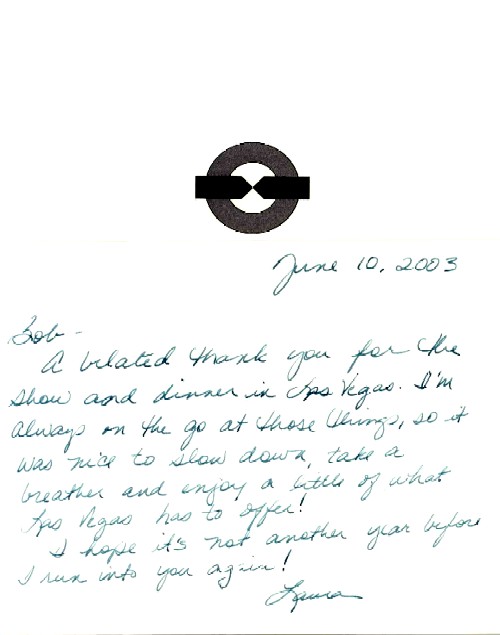 June 10, 2003
Bob -
A belated thank you for the
show and dinner in Las Vegas. I'm
always on the go at those things, so it
was nice to slow down, take a
breather and enjoy a little of what
Las Vegas has to offer!
I hope it's not another year before
I run into you again!
Laura